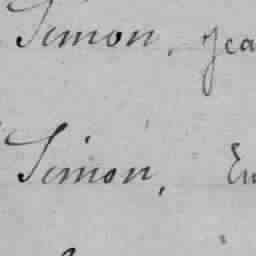 Simon, Jea
Simon, Eu